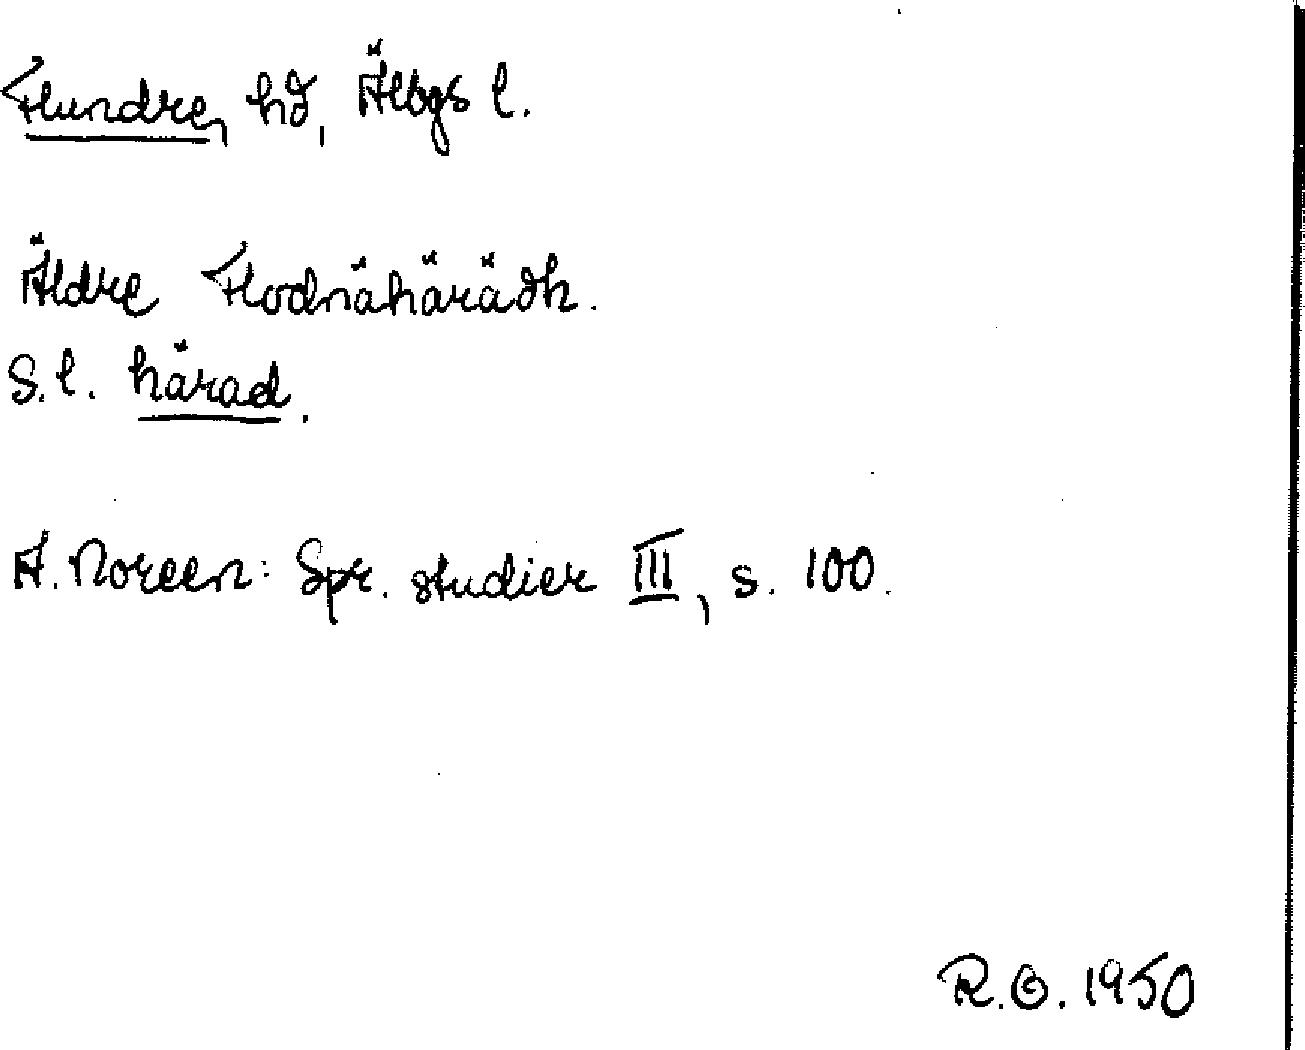 Flundre, hd, Älbgs l.
Äldre Flodnähärädh.
S.l. härad.
A. Noreen: Spr. studier III, s. 100.
R.O. 1950